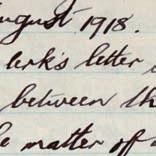 August 1918.
lerk's letter
between th
matter of